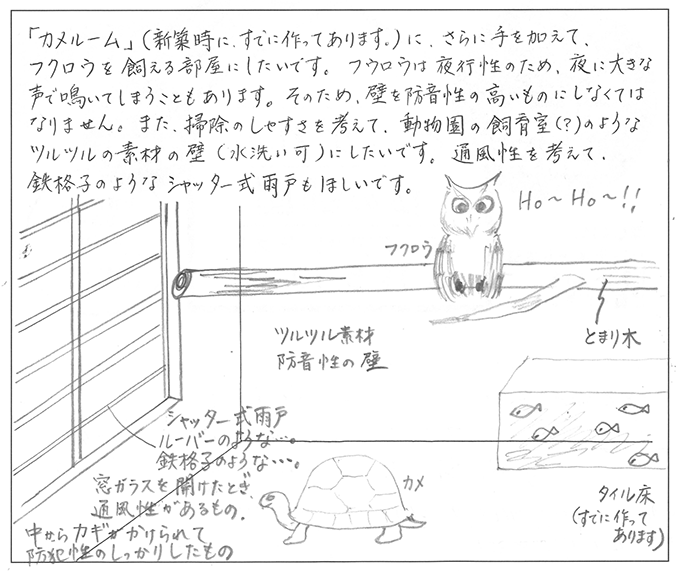 「カメルーム」(新築時に、すでに作ってあります。)に、さらに手を加えて、
フクロウを飼える部屋にしたいです。フウロウは夜行性のため、夜に大きな
声で鳴いてしまうこともあります。そのため、壁を防音性の高いものにしなくては
なりません。また、掃除のしやすさを考えて、動物園の飼育室(?)のような
ツルツルの素材の壁(水洗い可)にしたいです。通風性を考えて、
鉄格子のようなシャッター式雨戸もほしいです。
Ho〜Ho〜!!
フクロウ
とまり木
ツルツル素材
防音性の壁
シャッター式雨戸
ルーバーのような…。
鉄格子のような…。
窓ガラスを開けたとき、
通風性があるもの。
中からカギがかけられて
防犯性のしっかりしたもの
カメ
タイル床
(すでに作って
あります)